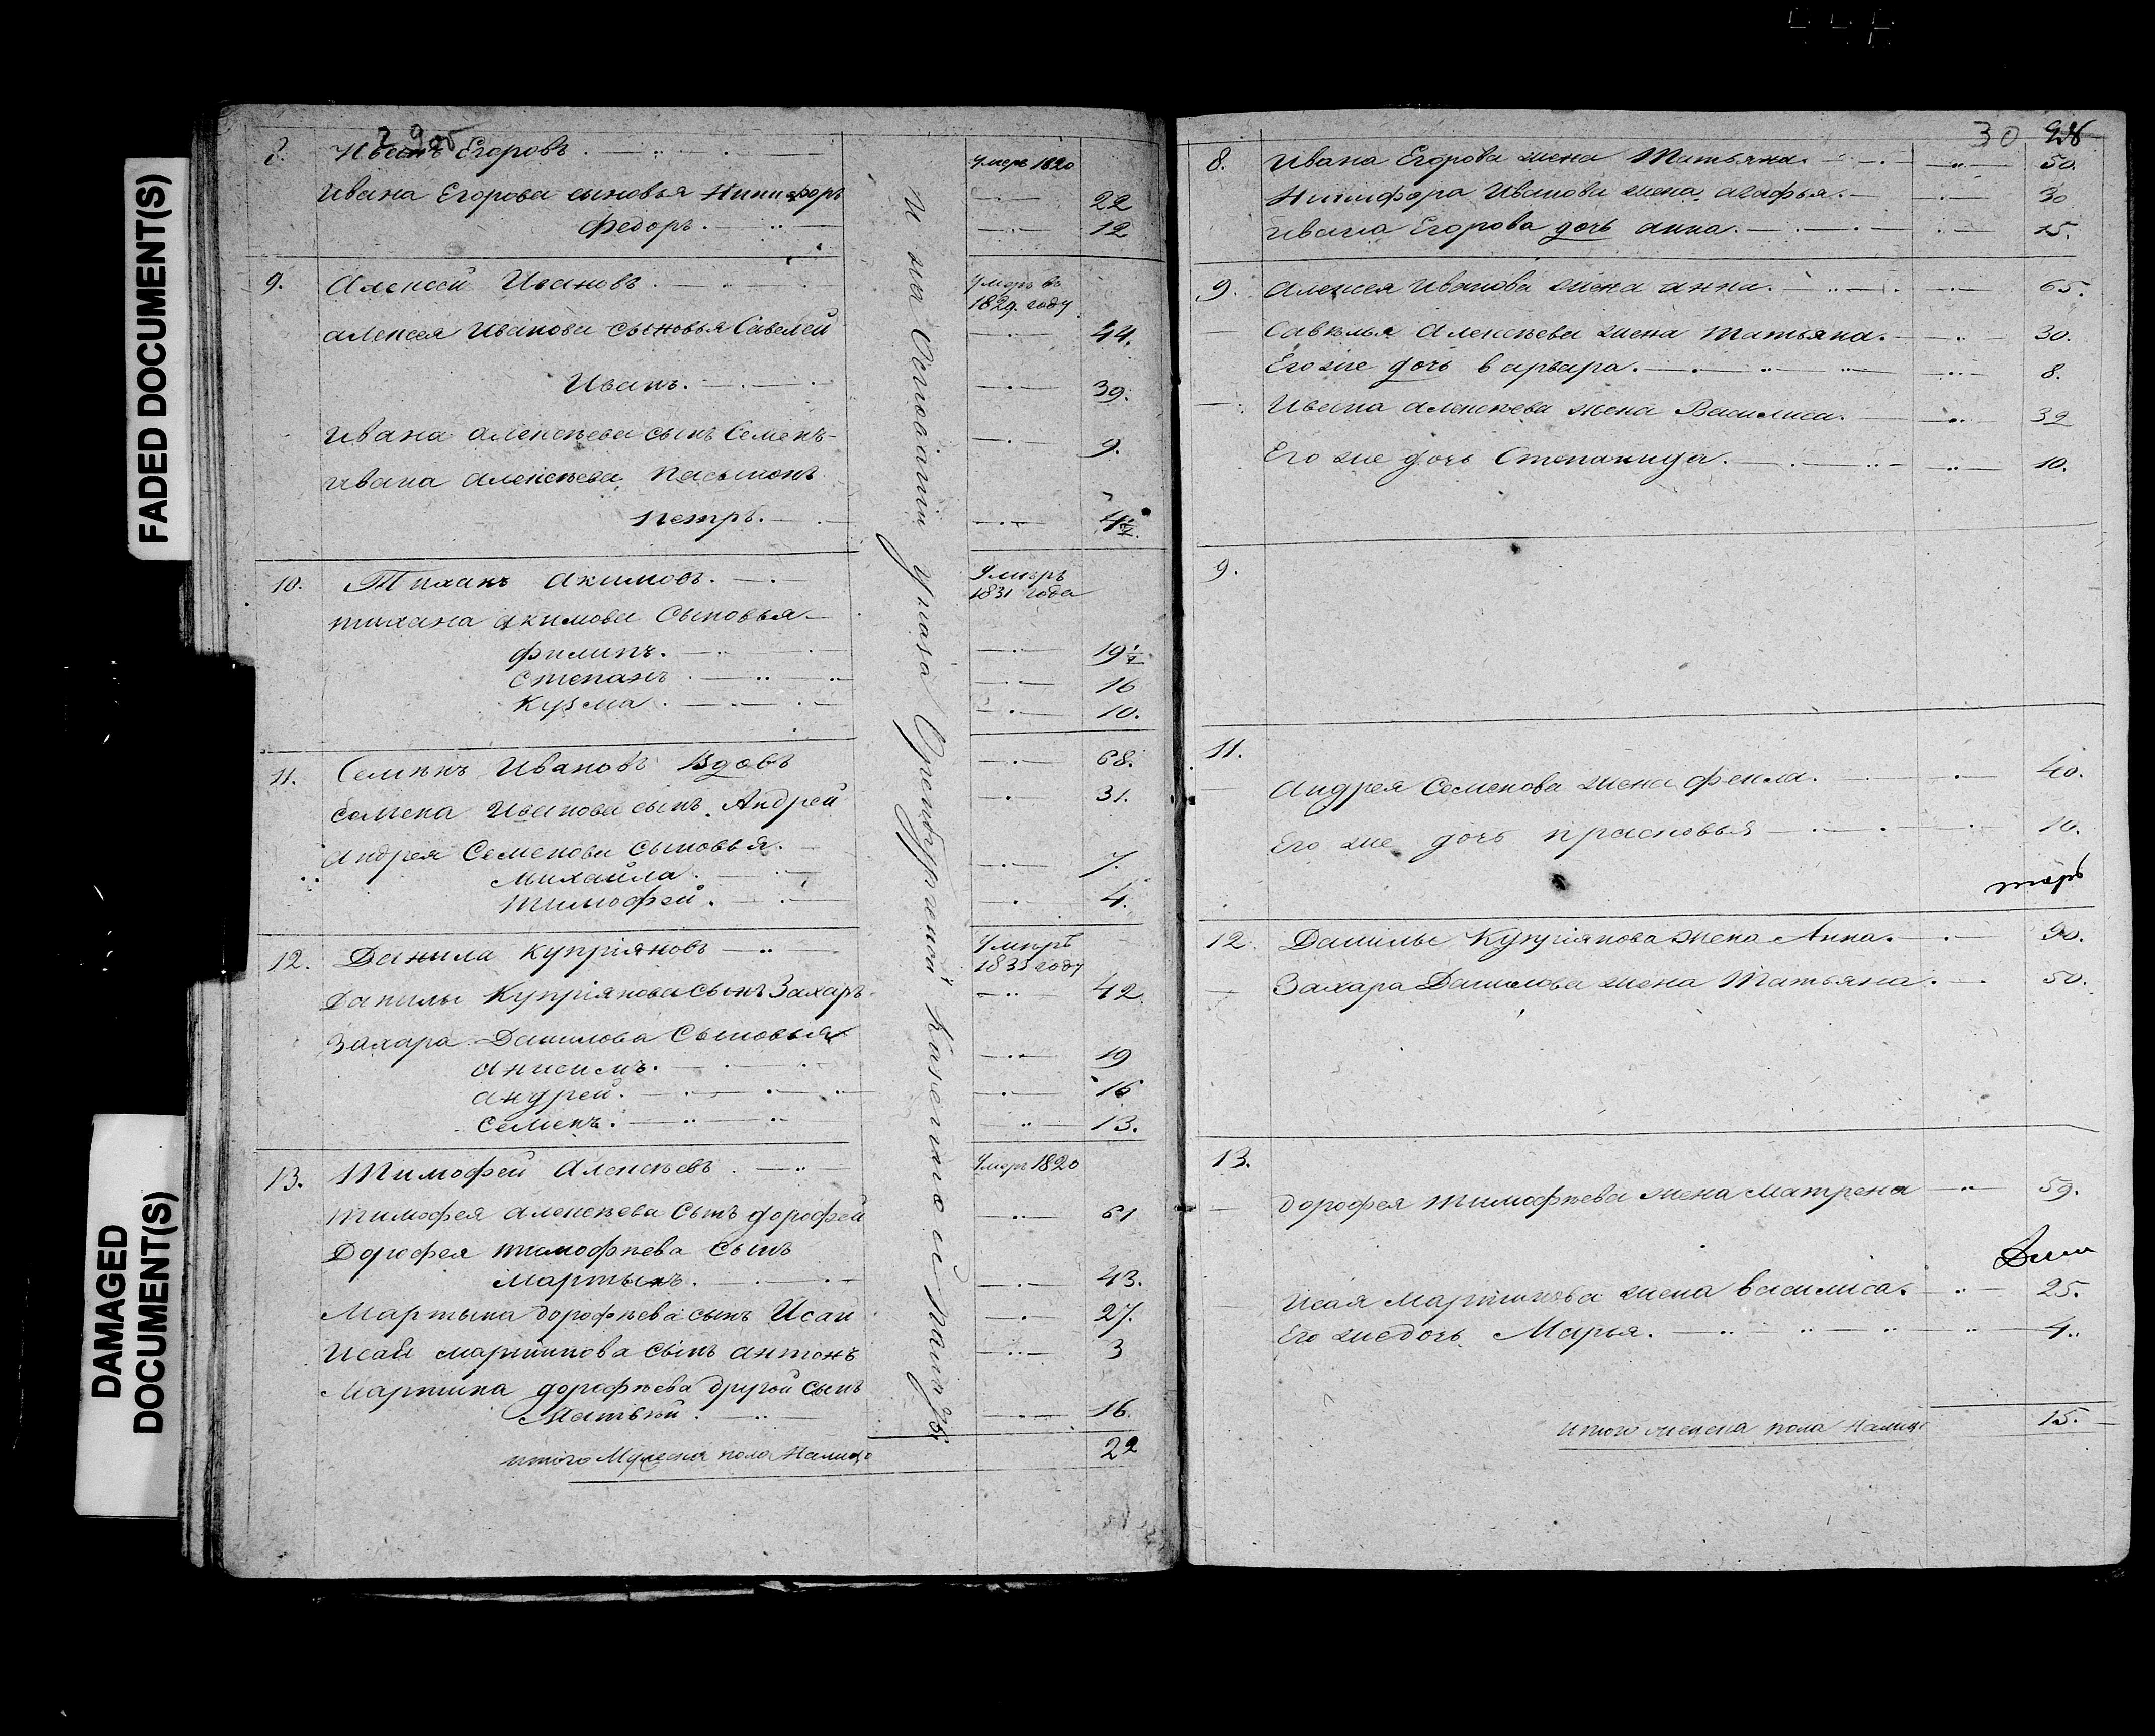 FADED DOCUMENT(S)
DAMAGED DOCUMENT(S)
8. Иванъ Егоровъ. умеръ 1820
Ивана Егорова сыновья Никифоръ 22
Федоръ. 12
9. Алексей Ивановъ. умеръ въ 1829. году
алексея Иванова сыновья Савелей 44.
Иванъ. 39.
Ивана алексеева сынъ Семенъ 9.
Ивана алексеева пасынокъ
петръ. 4½.
10. Тиханъ Акимовъ. умеръ 1831 года
тихана акимова Сыновья
филипъ. 19½
Степанъ 16
Кузма. 10.
11. Семенъ Ивановъ вдовъ 68.
семена Иванова сынъ Андрей 31.
андрея Семенова сыновья.
Михайла. 7.
тимофей. 4.
12. Данила Купріяновъ умеръ 1835 году
Данилы Купріянова сынъ Захаръ 42
Захара Данилова Сыновья
анисимъ. 19
андрей. 16
семенъ. 13.
13. Тимофей Алексѣевъ. умеръ 1820
тимофея алексѣева сынъ дорофей 61
Дорофея тимофѣева сынъ
Мартынъ. 43.
Мартына дорофѣева сынъ Исаи 27.
Исаи мартинова сынъ антонъ 3
Мартина дорофѣева другой сынъ
Матвѣй. 16.
итого Мужеска пола налицо 22
И на Основаніи указа Оренбургской Казенной палаты
30
8. Ивана Егорова жена Татьяна. 50.
Никифора Иванова жена агафья. 30
Ивана Егорова дочь анна. 15.
9. алексея Иванова жена анна. 65.
Савелья Алексеева жена татьяна. 30.
Его же дочь варвара. 8.
Ивана алексеева жена Василиса. 32
Его же дочь Степанида. 10.
9.
11.
андрея Семенова жена фекла. 40.
Его же дочь прасковья 10.
12. Данилы Купріянова жена Анна. 90.
Захара Данилова жена Татьяна. 50.
13.
дорофея тимофѣева жена матрена 59.
Исая Мартинова жена василиса. 25.
Его же дочь Марья. 4.
итого женска пола налицо 15.